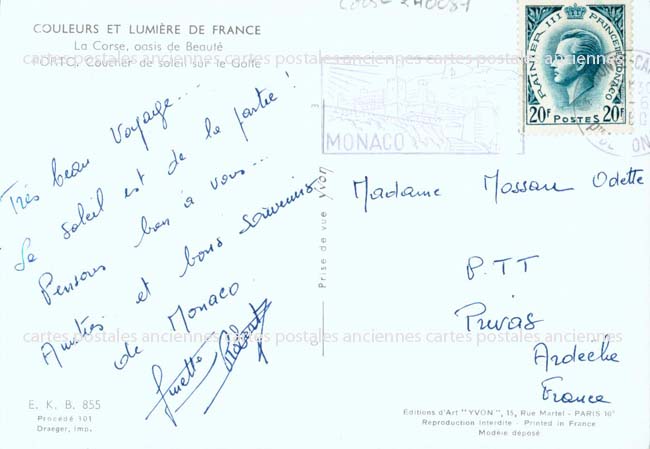 COULEURS ET LUMIÈRE DE FRANCE
La Corse, oasis de Beauté
PORTO, Coucher de soleil sur le Golfe
Très beau voyage...
Le soleil est de la partie !
Pensons bien à vous...
Amitiés et bons souvenirs
de Monaco
Ginette
E. K. B. 855
Procédé 301
Draeger, Imp.
Prise de vue YVON
MONACO
RAINIER III PRINCE DE MONACO
20F POSTES 20F
Madame Mossan Odette
P.TT
Privas
Ardeche
France
Editions d'Art "YVON", 15, Rue Martel - PARIS 10e
Reproduction Interdite - Printed in France
Modèle déposé
cartes postales anciennes cartes postales anciennes cartes postales anciennes
cartes postales anciennes cartes postales anciennes cartes postales anciennes